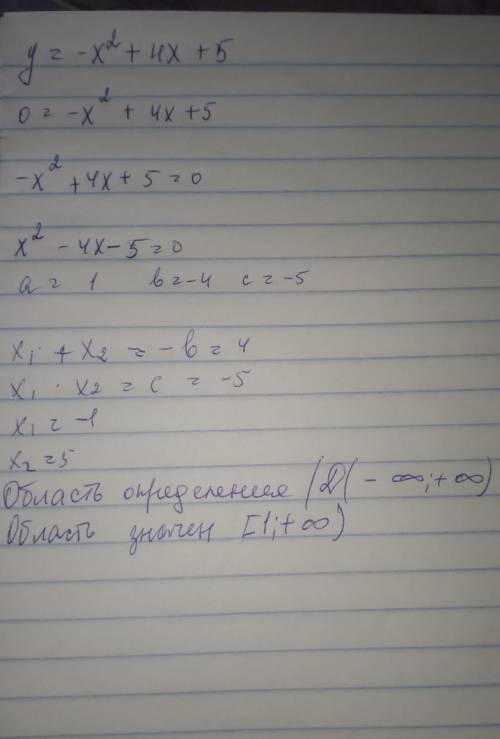 y = -x² + 4x + 5
0 = -x² + 4x + 5
-x² + 4x + 5 = 0
x² - 4x - 5 = 0
a = 1 b = -4 c = -5
x₁ + x₂ = -b = 4
x₁ · x₂ = c = -5
x₁ = -1
x₂ = 5
Область определения (D(-∞;+∞)
Область значен [1;+∞)